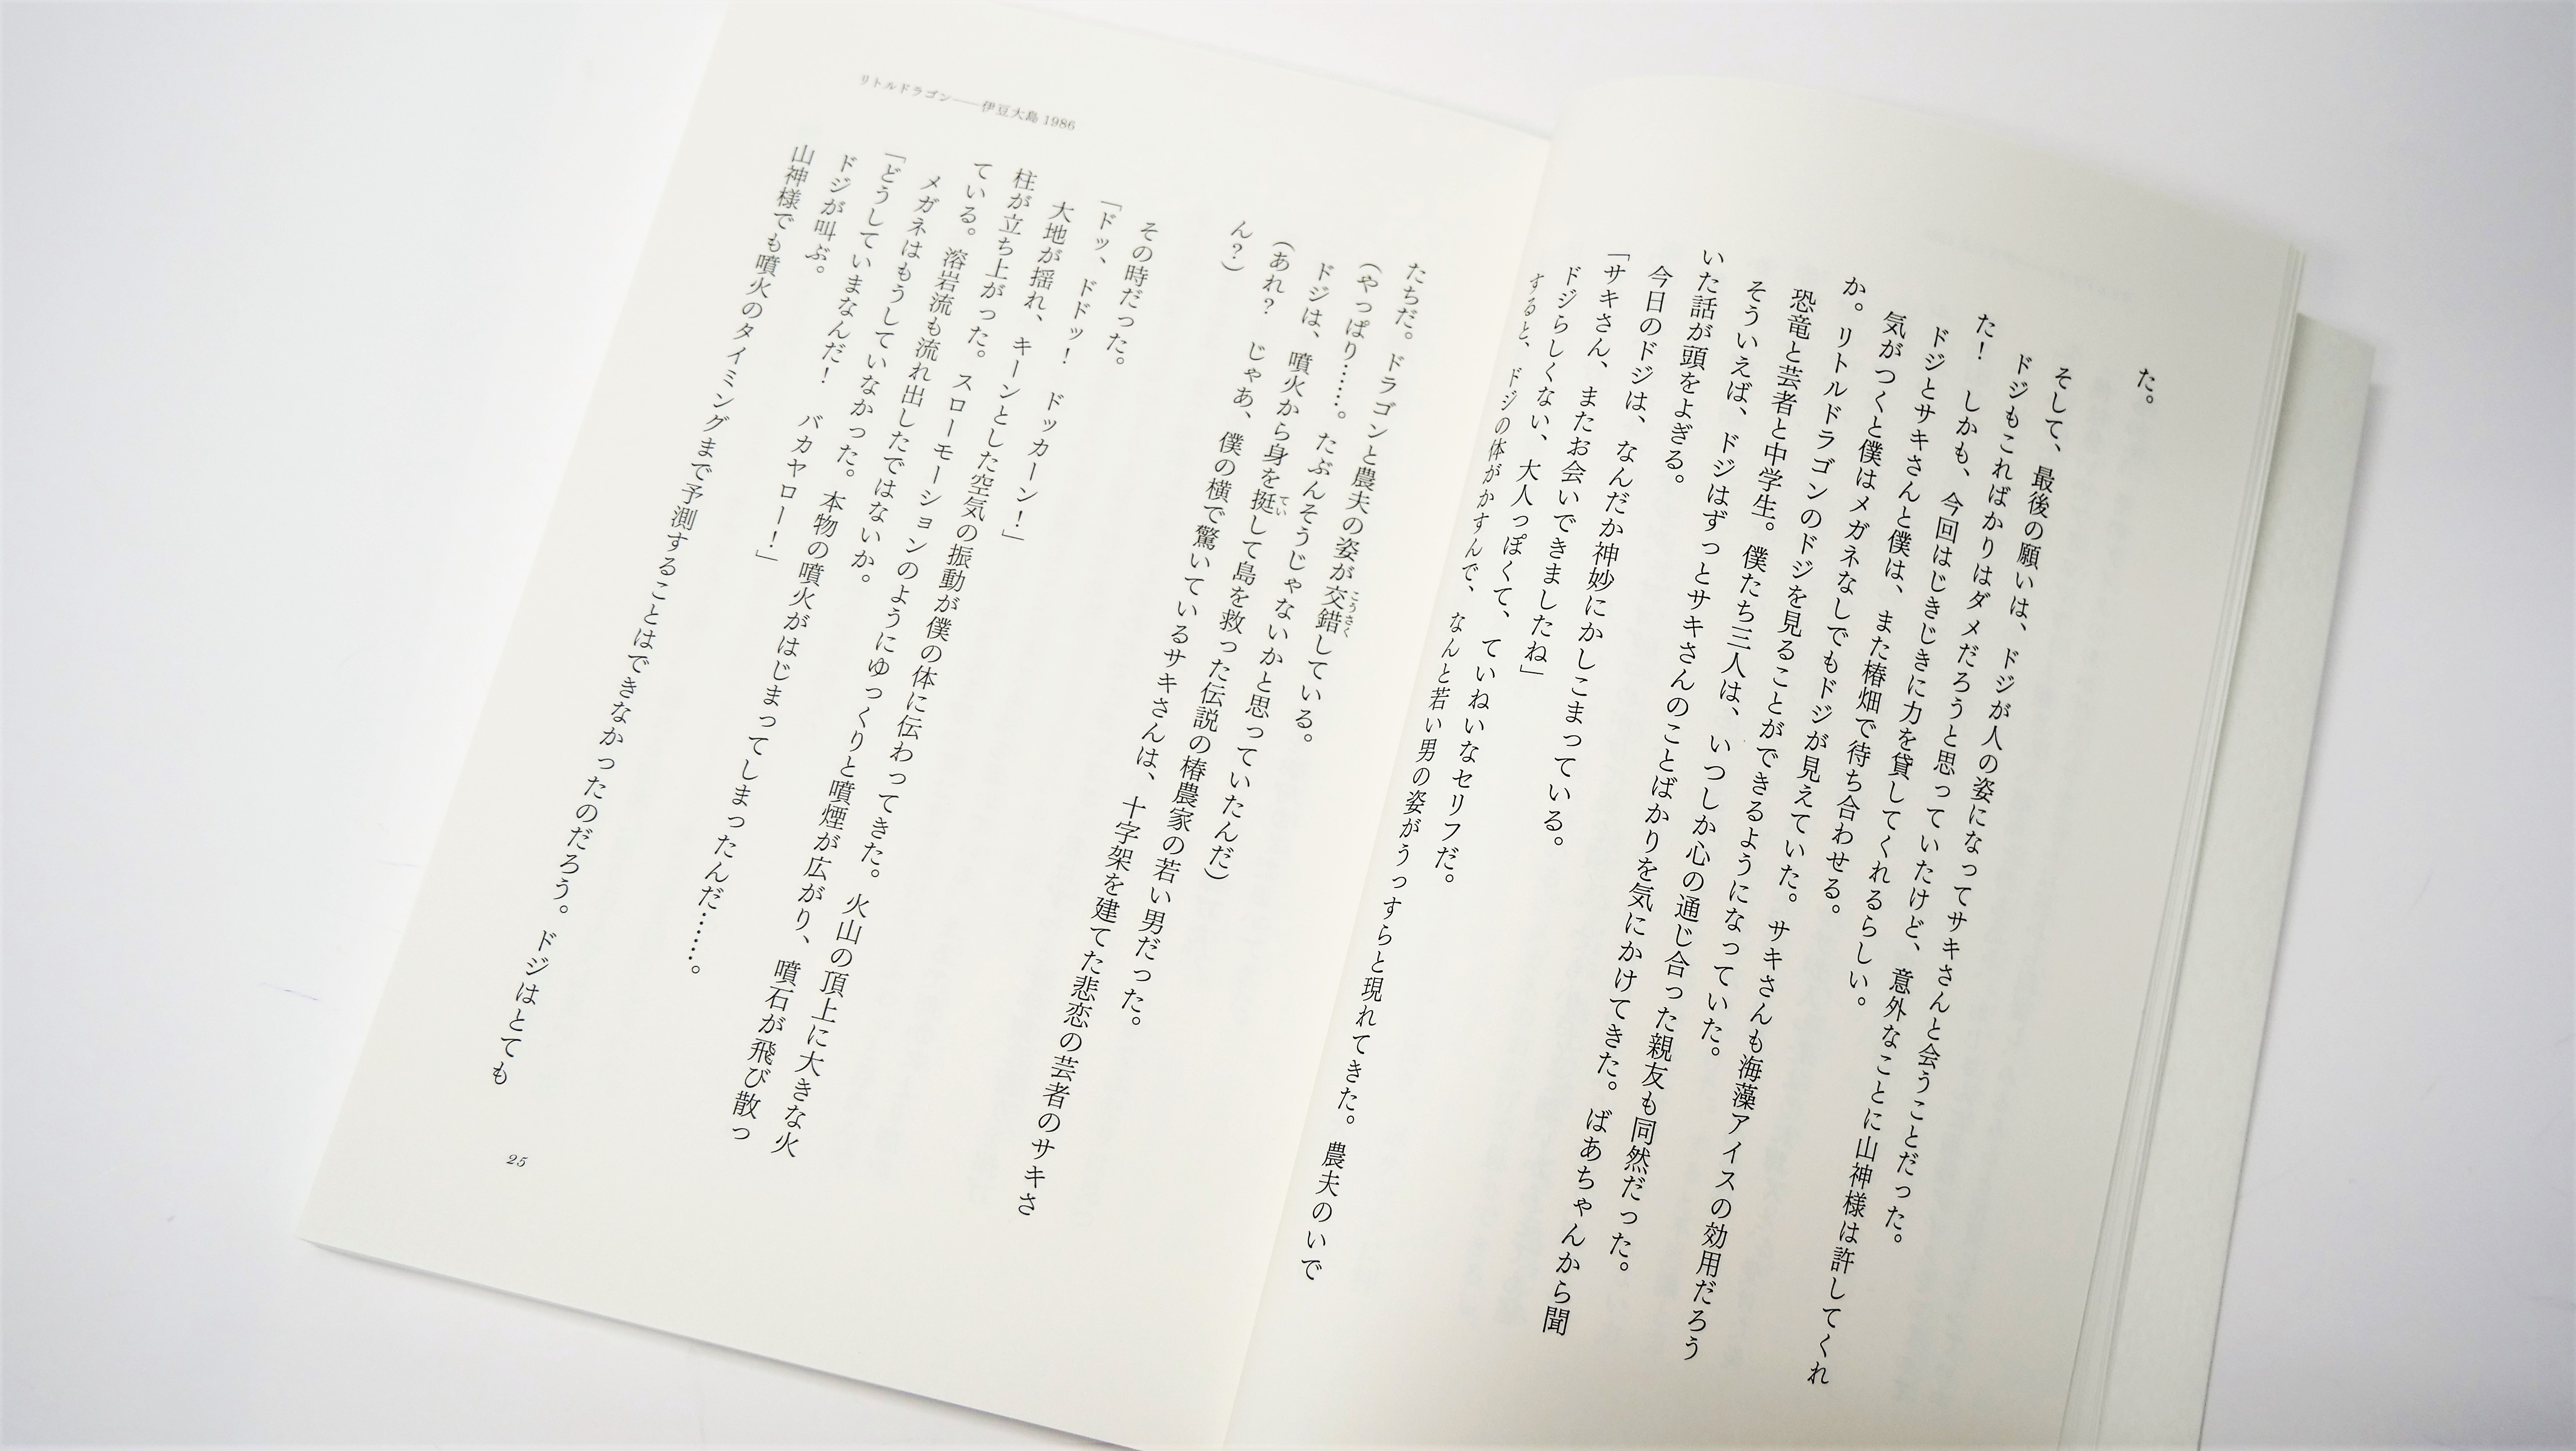 た。
そして、最後の願いは、ドジが人の姿になってサキさんと会うことだった。
ドジもこればかりはダメだろうと思っていたけど、意外なことに山神様は許してくれ
た！　しかも、今回はじきじきに力を貸してくれるらしい。
ドジとサキさんと僕は、また椿畑で待ち合わせる。
気がつくと僕はメガネなしでもドジが見えていた。サキさんも海藻アイスの効用だろう
か。リトルドラゴンのドジを見ることができるようになっていた。
恐竜と芸者と中学生。僕たち三人は、いつしか心の通じ合った親友も同然だった。
そういえば、ドジはずっとサキさんのことばかりを気にかけてきた。ばあちゃんから聞
いた話が頭をよぎる。
今日のドジは、なんだか神妙にかしこまっている。
「サキさん、またお会いできましたね」
ドジらしくない、大人っぽくて、ていねいなセリフだ。
すると、ドジの体がかすんで、なんと若い男の姿がうっすらと現れてきた。農夫のいで
たちだ。ドラゴンと農夫の姿が交錯こうさくしている。
（やっぱり……。たぶんそうじゃないかと思っていたんだ）
ドジは、噴火から身を挺ていして島を救った伝説の椿農家の若い男だった。
（あれ？　じゃあ、僕の横で驚いているサキさんは、十字架を建てた悲恋の芸者のサキさ
ん？）
その時だった。
「ドッ、ドドッ！　ドッカーン！」
大地が揺れ、キーンとした空気の振動が僕の体に伝わってきた。火山の頂上に大きな火
柱が立ち上がった。スローモーションのようにゆっくりと噴煙が広がり、噴石が飛び散っ
ている。溶岩流も流れ出したではないか。
メガネはもうしていなかった。本物の噴火がはじまってしまったんだ……。
「どうしていまなんだ！　バカヤロー！」
ドジが叫ぶ。
山神様でも噴火のタイミングまで予測することはできなかったのだろう。ドジはとても
リトルドラゴン――伊豆大島 1986
25